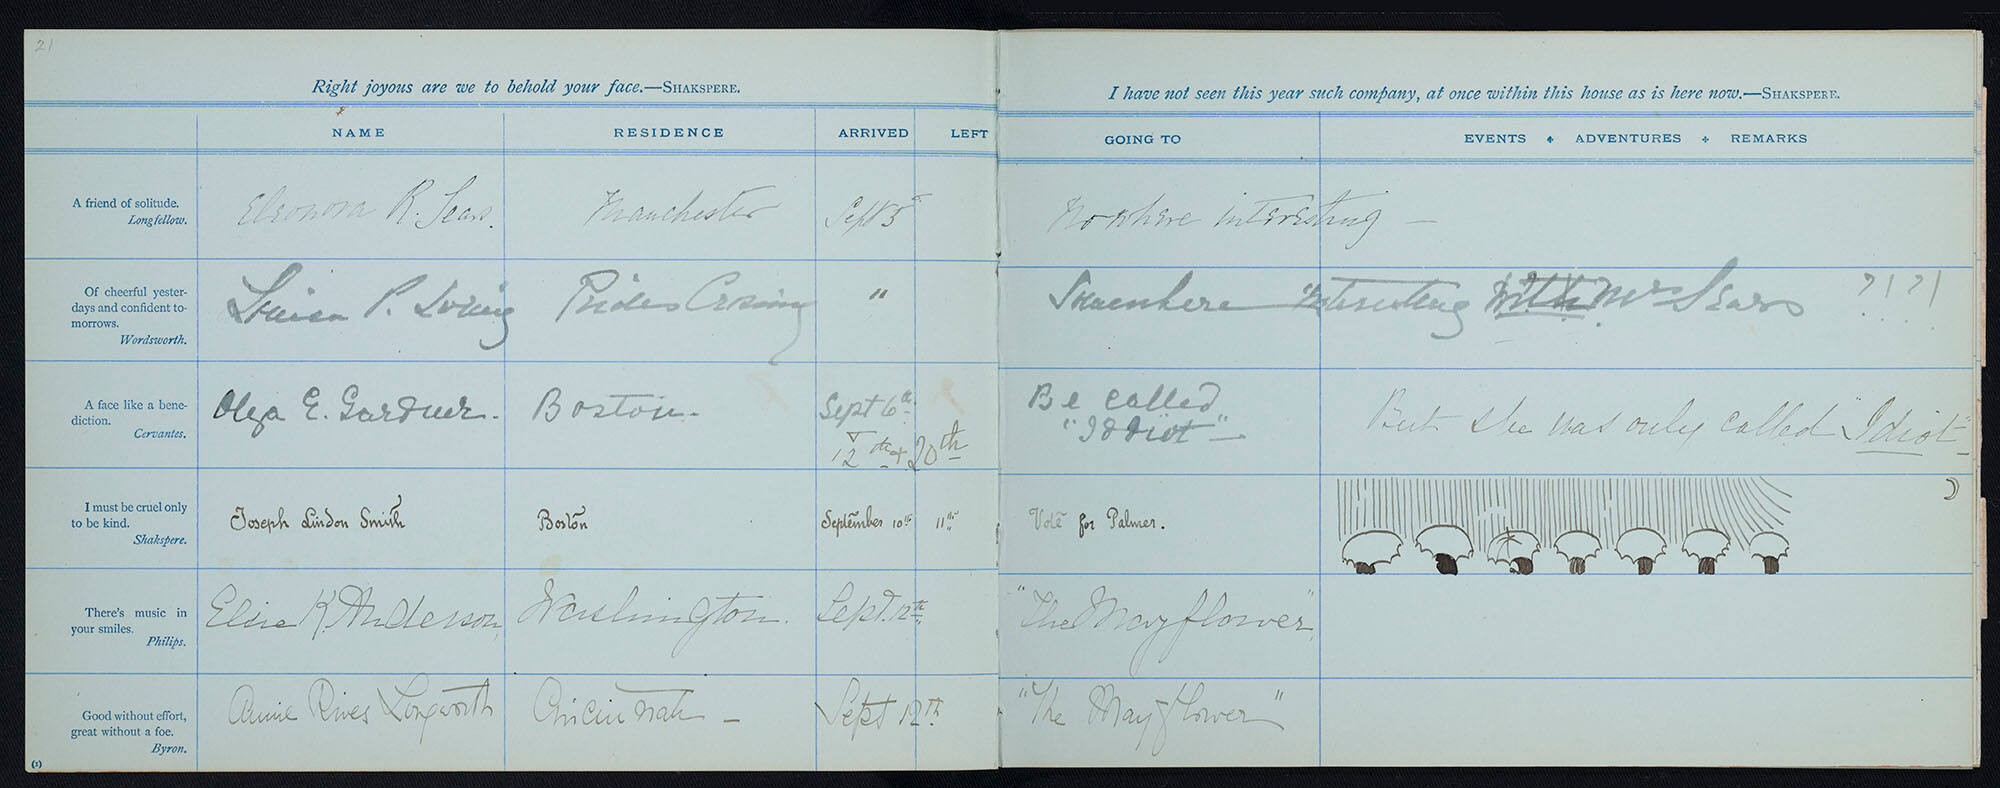 21
Right joyous are we to behold your face.—SHAKSPERE.
I have not seen this year such company, at once within this house as is here now.—SHAKSPERE.
NAME RESIDENCE ARRIVED LEFT GOING TO EVENTS ADVENTURES REMARKS
A friend of solitude.
Longfellow.
Eleonora R. Sears. Manchester Sept 5th Nowhere interesting —
Of cheerful yester-
days and confident to-
morrows.
Wordsworth.
Louisa P. Loring Prides Crossing " Somewhere interesting with Mr Sears ?!?!
A face like a bene-
diction.
Cervantes.
Olga E. Gardner. Boston. Sept 6th
12th + 20th
Be called
"Idiot"
But she was only called "Idiot"
I must be cruel only
to be kind.
Shakspere.
Joseph Lindon Smith Boston September 10th 11th Vote for Palmer.
There's music in
your smiles.
Philips.
Elsie K. Anderson Washington. Sept. 12th "The Mayflower"
Good without effort,
great without a foe.
Byron.
Annie Rives Longworth Cincinnati — Sept 12th "The Mayflower"
(2)